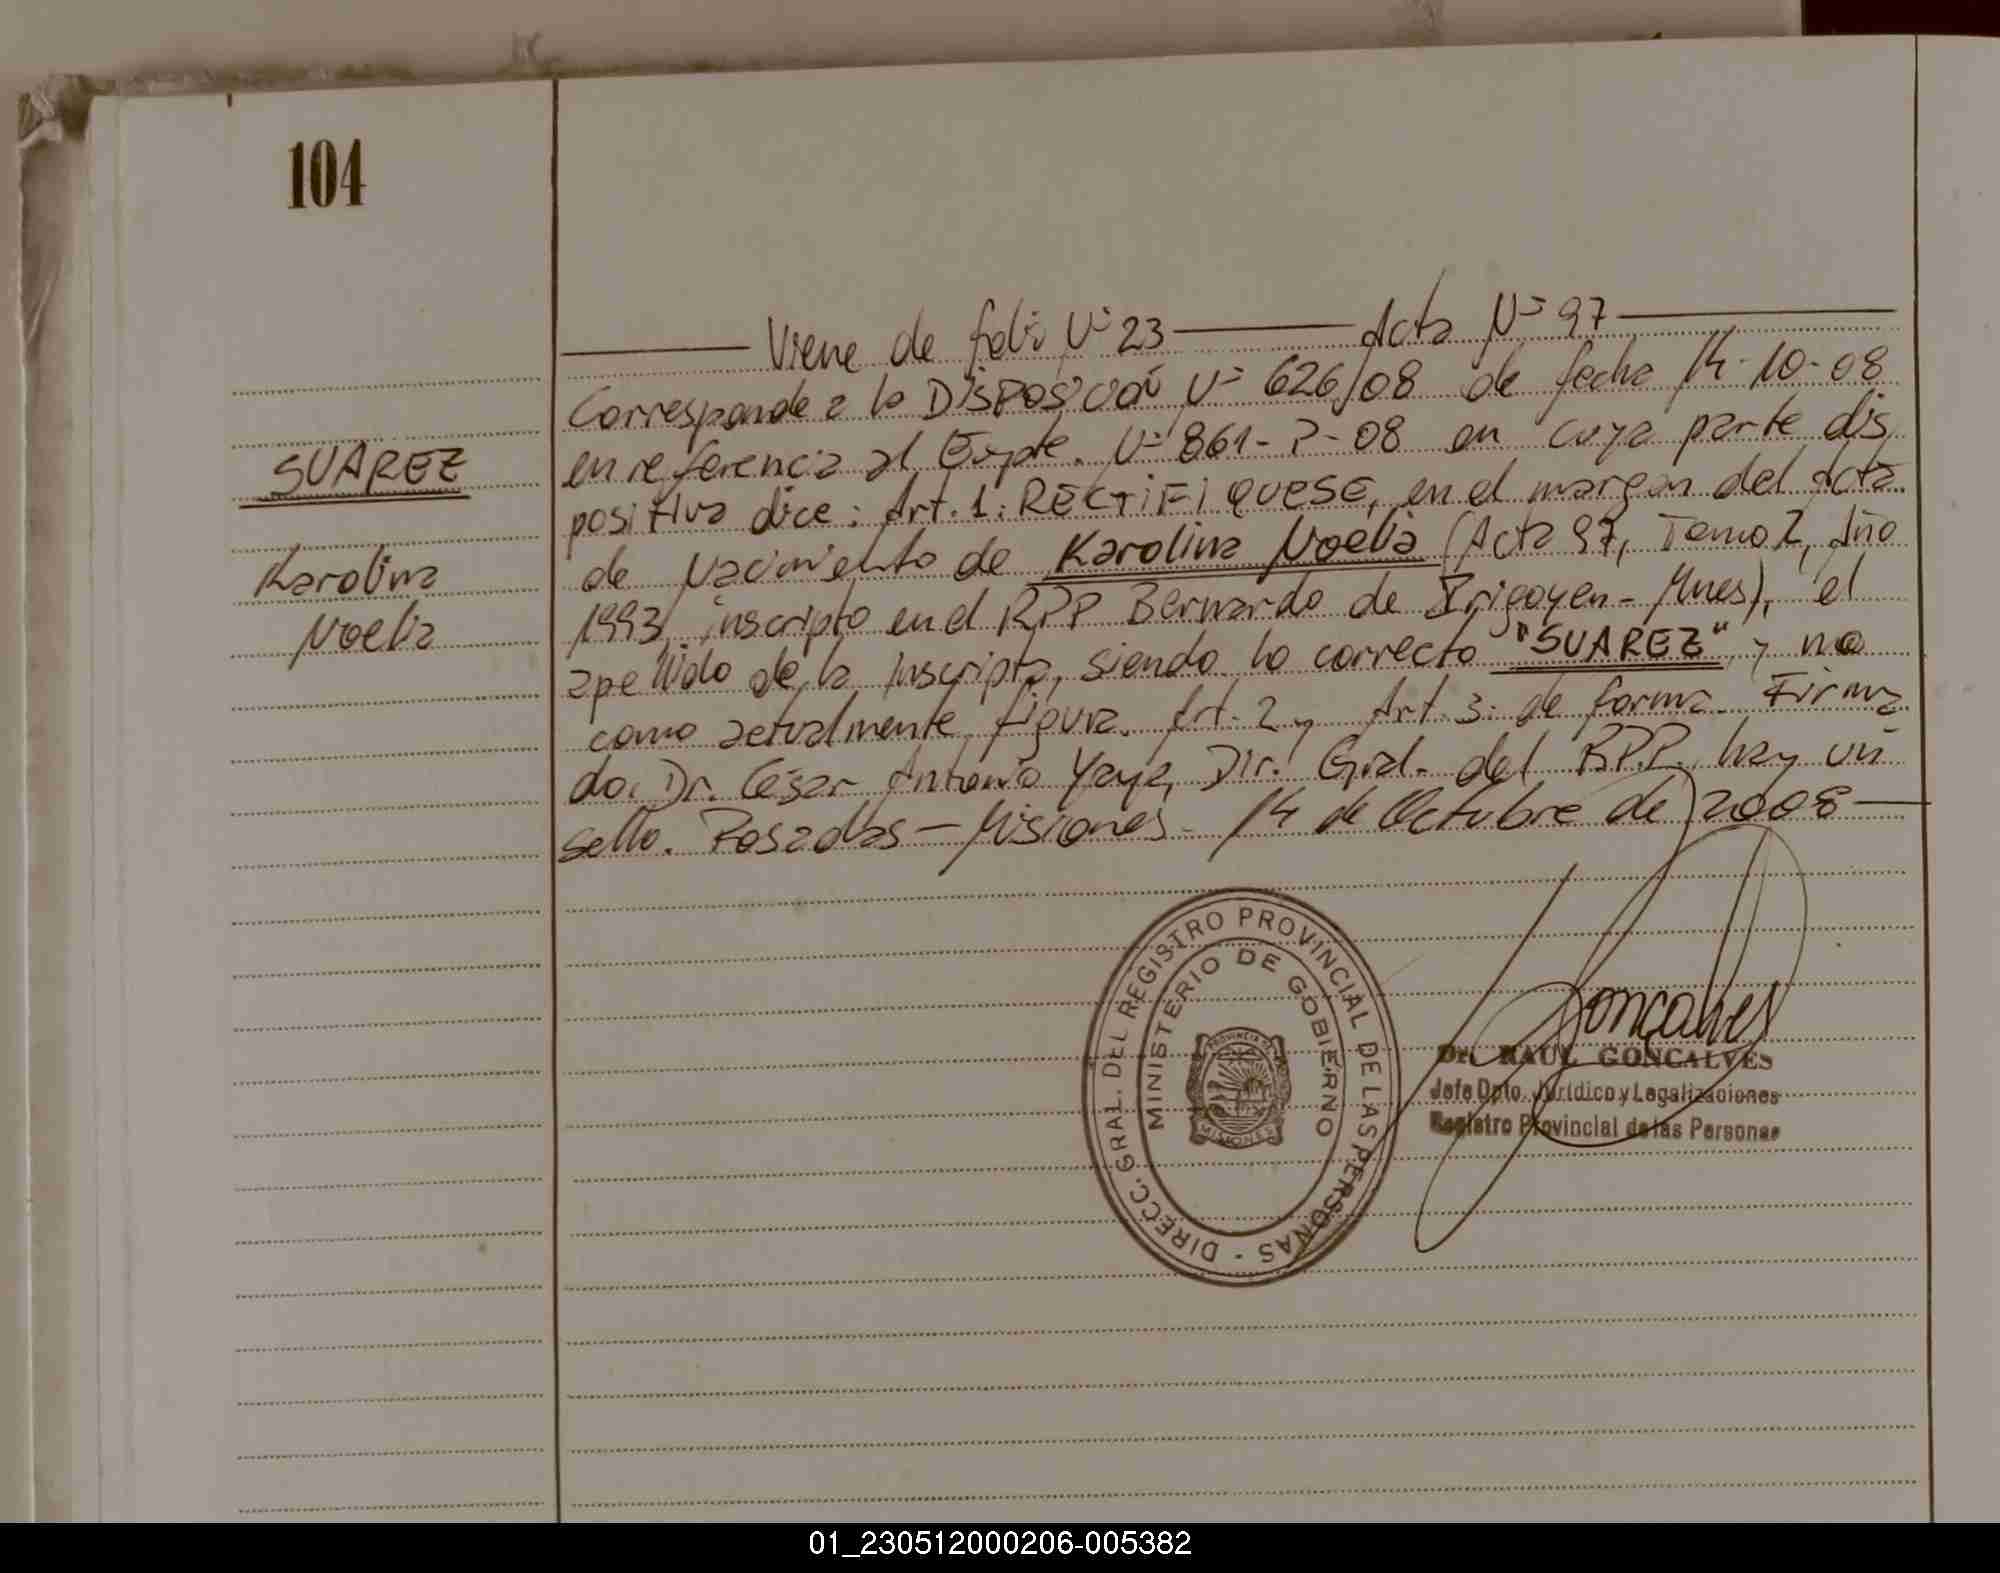 104
Viene de folio Nº 23 Acta Nº 97
Corresponde a la DISPOSICIÓN Nº 626/08 de fecha 14-10-08
en referencia al Expte. Nº 861-P-08 en cuya parte dis
positiva dice: Art. 1: RECTIFIQUESE, en el margen del Acta
de Nacimiento de Karolina Noelia (Acta 97, Tomo I, Año
1993, inscripto en el RPP Bernardo de Irigoyen - Mnes), el
apellido de la inscripta, siendo lo correcto "SUAREZ", y no
como actualmente figura. Art. 2 y Art. 3: de forma. Firma
do. Dr. César Antonio Yaya, Dir. Gral. del RPP. hay un
sello. Posadas - Misiones - 14 de Octubre de 2008
SUAREZ
Karolina
Noelia
DIRECC. GRAL. DEL REGISTRO PROVINCIAL DE LAS PERSONAS -
MINISTERIO DE GOBIERNO
PROVINCIA DE
MISIONES
Gonçalves
Dr. RAUL GONCALVES
Jefe Dpto. Jurídico y Legalizaciones
Registro Provincial de las Personas
01_230512000206-005382